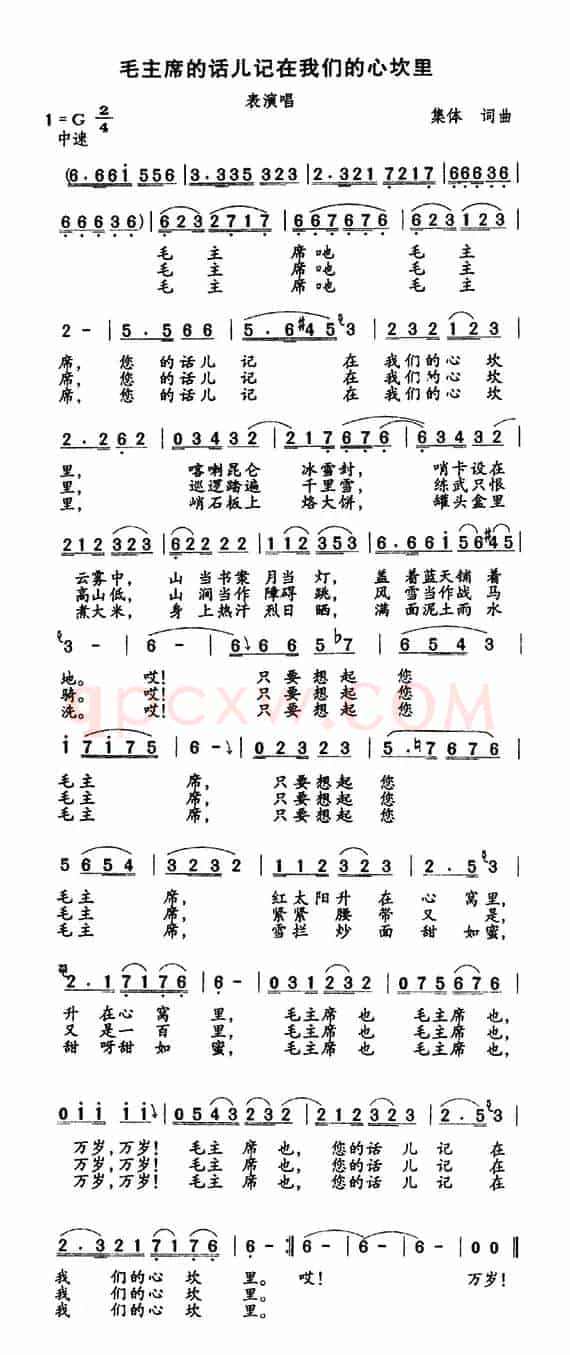 毛主席的话儿记在我们的心坎里
表演唱
1=G 2/4
集体 词曲
中速
(6.66i 556 | 3.335 323 | 2.321 7217 | 66636
66636) | 6232717 | 667676 | 623123
毛 主 席吔 毛 主
毛 主 席吔 毛 主
毛 主 席吔 毛 主
2 - | 5.566 | 5.6#45 3 | 232 123
席, 您 的话儿 记 在 我们的心 坎
席, 您 的话儿 记 在 我们的心 坎
席, 您 的话儿 记 在 我们的心 坎
2.262 | 03432 | 217676 | 63432
里, 喀喇昆仑 冰雪封, 哨卡设在
里, 巡逻踏遍 千里雪, 练武只恨
里, 峭石板上 烙大饼, 罐头盒里
212 323 | 62222 | 112 353 | 6.66i56#45
云雾中, 山 当书案 月当 灯, 盖 着蓝天铺 着
高山低, 山 涧当作 障碍 跳, 风 雪当作战 马
煮大米, 身 上热汗 烈日 晒, 满 面泥土雨 水
3 - | 6 - | 6 6 6 5 b7 | 6 5 4 3
地。 哎! 只 要想 起 您
骑。 哎! 只 要想 起 您
洗。 哎! 只 要想 起 您
i7i75 | 6 - | 02323 | 5.♮7676
毛主 席, 只要想起 您
毛主 席, 只要想起 您
毛主 席, 只要想起 您
5654 | 3232 | 112323 | 2.53
毛主 席, 红太阳升 在 心 窝里,
毛主 席, 紧紧腰 带 又 是,
毛主 席, 雪拦炒 面 甜 如蜜,
2.17176 | 6- | 031232 | 075676
升 在心 窝 里, 毛主席也 毛主席也,
又 是一 百 里, 毛主席也 毛主席也,
甜 呀甜 如 蜜, 毛主席也 毛主席也,
0 i i i i | 0543232 | 212323 | 2.53
万岁,万岁! 毛主 席也, 您的话 儿 记 在
万岁,万岁! 毛主 席也, 您的话 儿 记 在
万岁,万岁! 毛主 席也, 您的话 儿 记 在
2.3217176 | 6- :‖ 6- | 6- | 6- | 00 ‖
我 们的心 坎 里。 哎! 万岁!
我 们的心 坎 里。
我 们的心 坎 里。
qpcxw.COM